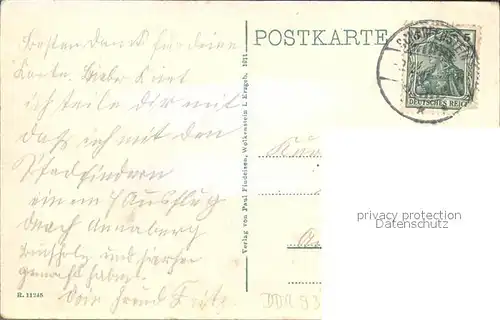 Besten Dank für deine
Karte. Lieber Kurt
ich teile dir mit
daß ich mit den
Pfadfindern
einen Ausflug
nach Annaberg
Buchholz und
gemacht habe.
Dein Freund
R. 11248
Verlag von Paul Findeisen, Wolkenstein i. Erzgeb. 1911
POSTKARTE
5
DEUTSCHES REICH
privacy protection
Datenschutz